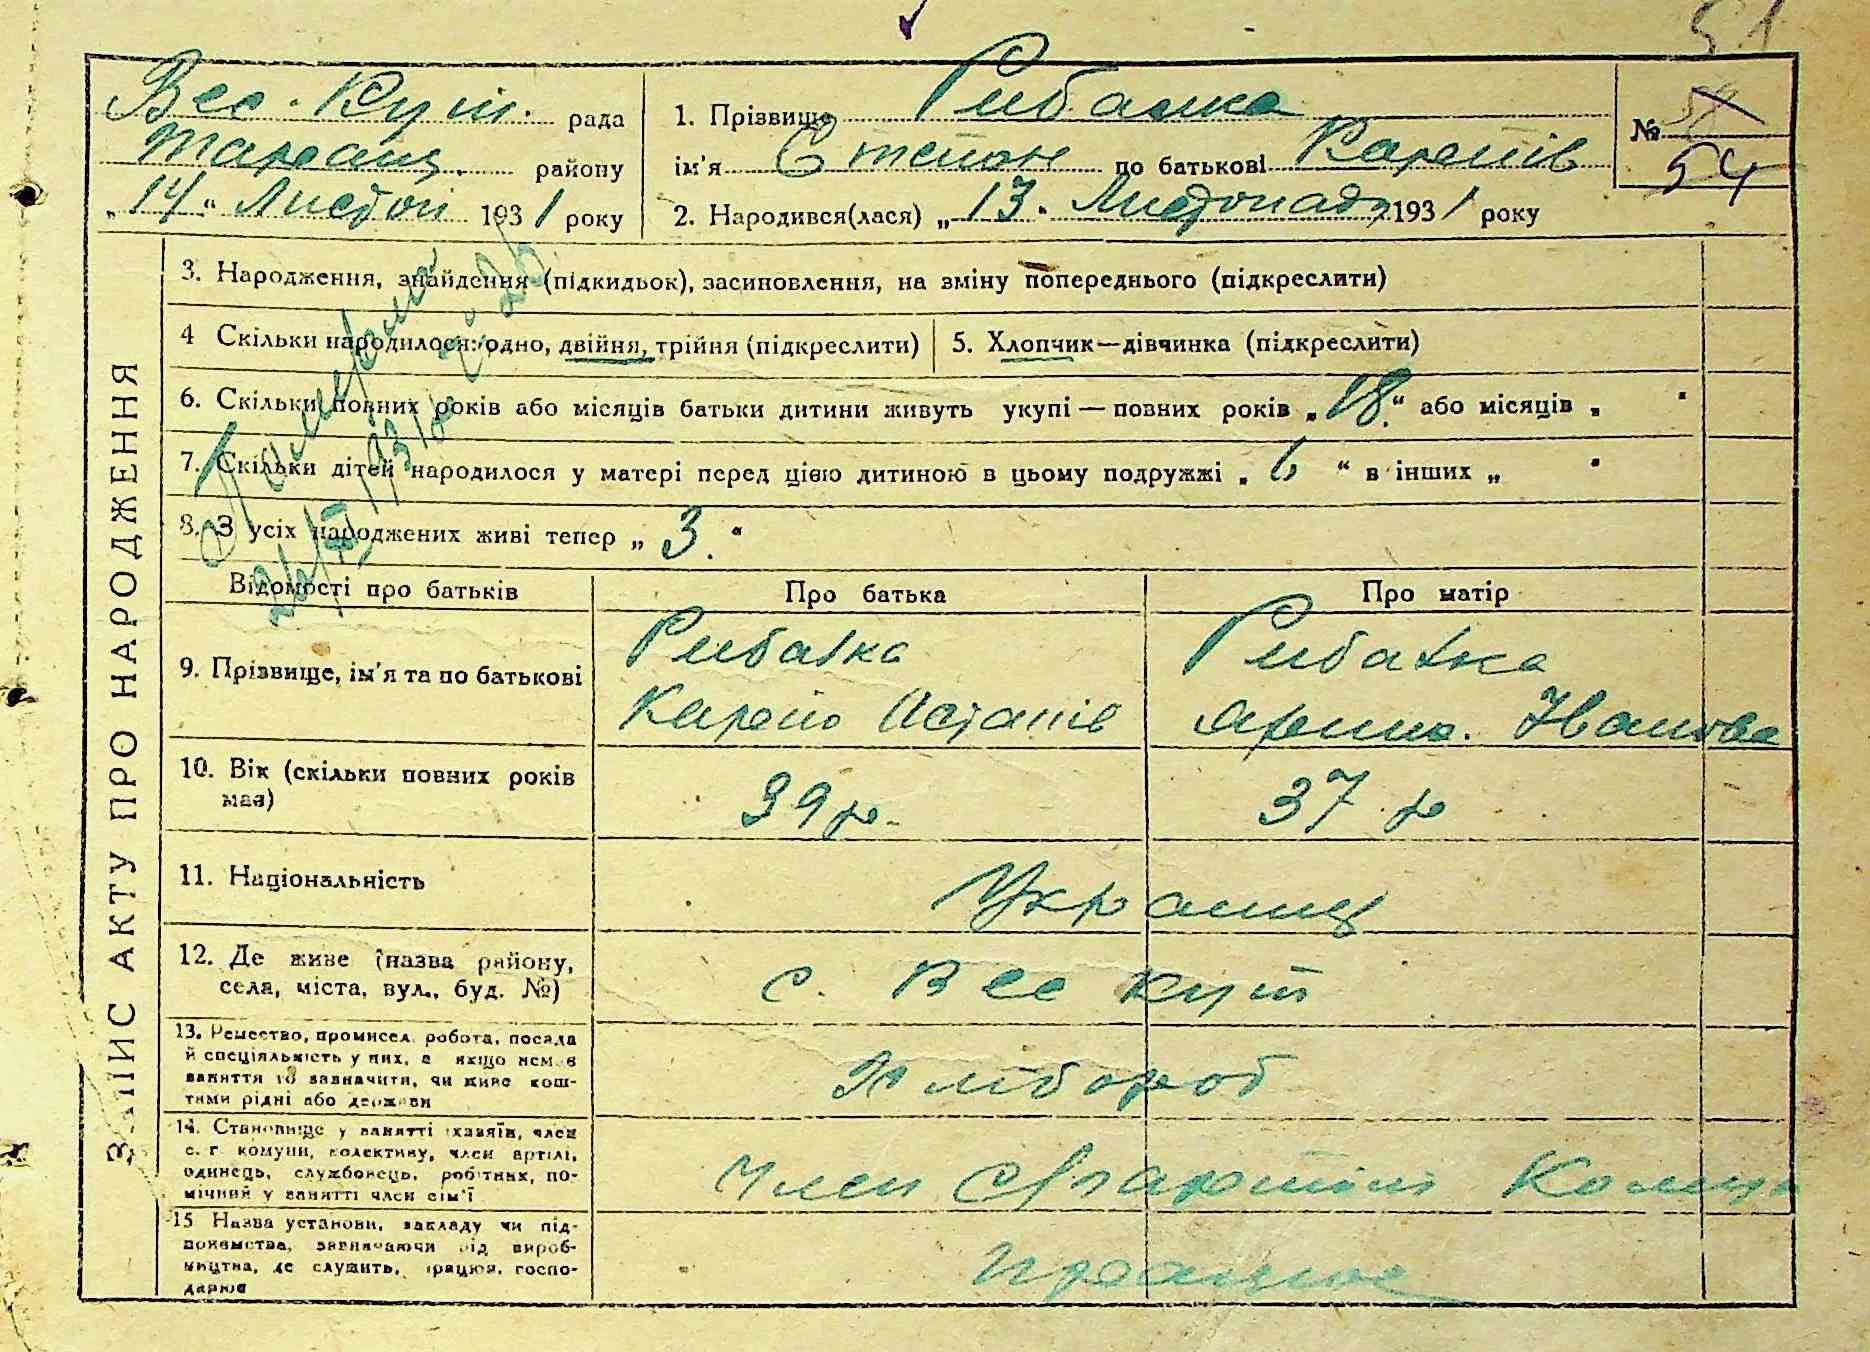 51
Вес. Кут. рада
Таращ. району
„14“ Листоп 1931 року
1. Прізвище Рибалка
ім'я Степан по батькові Карпів
2. Народився(лася) „13“ Листопада 1931 року
№ 54
ЗАПИС АКТУ ПРО НАРОДЖЕННЯ
3. Народження, знайдення (підкидьок), засиновлення, на зміну попереднього (підкреслити)
4 Скільки народилося: одно, двійня, трійня (підкреслити)
5. Хлопчик—дівчинка (підкреслити)
6. Скільки повних років або місяців батьки дитини живуть укупі — повних років „18“ або місяців „ “
7. Скільки дітей народилося у матері перед цією дитиною в цьому подружжі „6“ в інших „ “
8. З усіх народжених живі тепер „3.“
Відомості про батьків
Про батька
Про матір
9. Прізвище, ім'я та по батькові
Рибалка
Карпо Астапів
Рибалка
Ярина Іванова
10. Вік (скільки повних років
має)
39 р.
37 р
11. Національність
Українц
12. Де живе (назва району,
села, міста, вул., буд. №)
с. Вес Кут
13. Ремество, промисел, робота, посада
й спеціяльність у них, а якщо нема
заняття то зазначити, чи живе кош-
тами рідні або держави
Хлібороб
14. Становище у занятті (хазяїн, член
с. г. комуни, колективу, член артілі,
одинець, службовець, робітник, по-
мічний у занятті член сім'ї
Член
15 Назва установи, закладу чи під-
приємства, зазначаючи від вироб-
ництва, де служить, працює, госпо-
дарює
працює